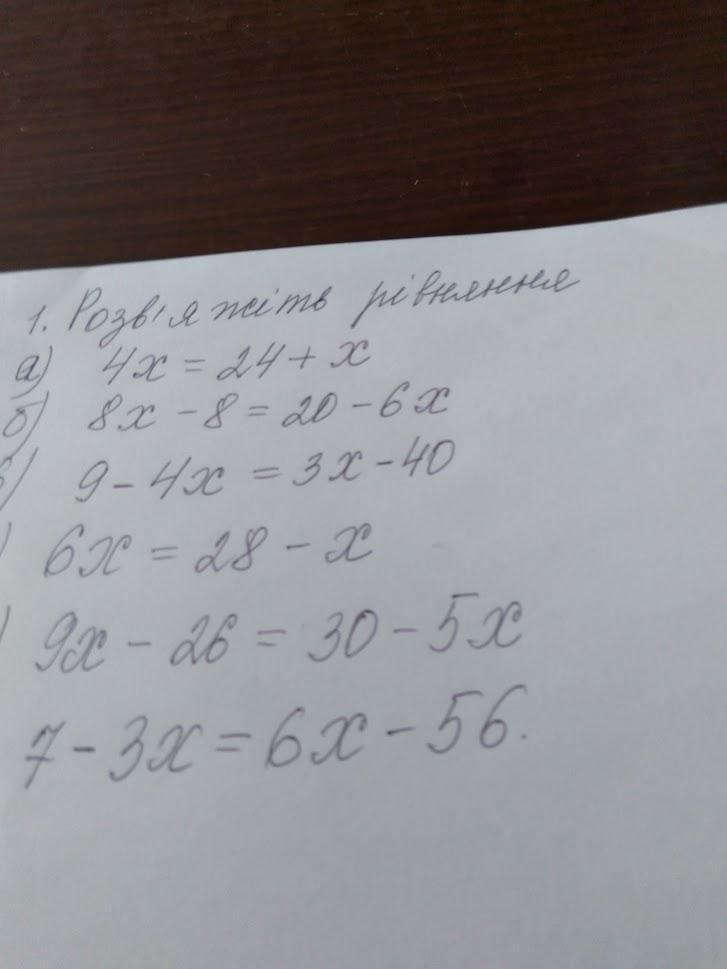 1. Розв'яжіть рівняння
а) 4x = 24 + x
б) 8x - 8 = 20 - 6x
) 9 - 4x = 3x - 40
) 6x = 28 - x
) 9x - 26 = 30 - 5x
7 - 3x = 6x - 56.